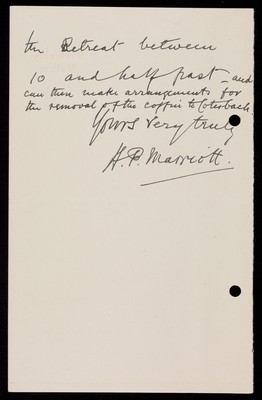 the Retreat between
10 and half past - and
can then make arrangements for
the removal of the coffin to
Yours very truly
H. P. Marriott.